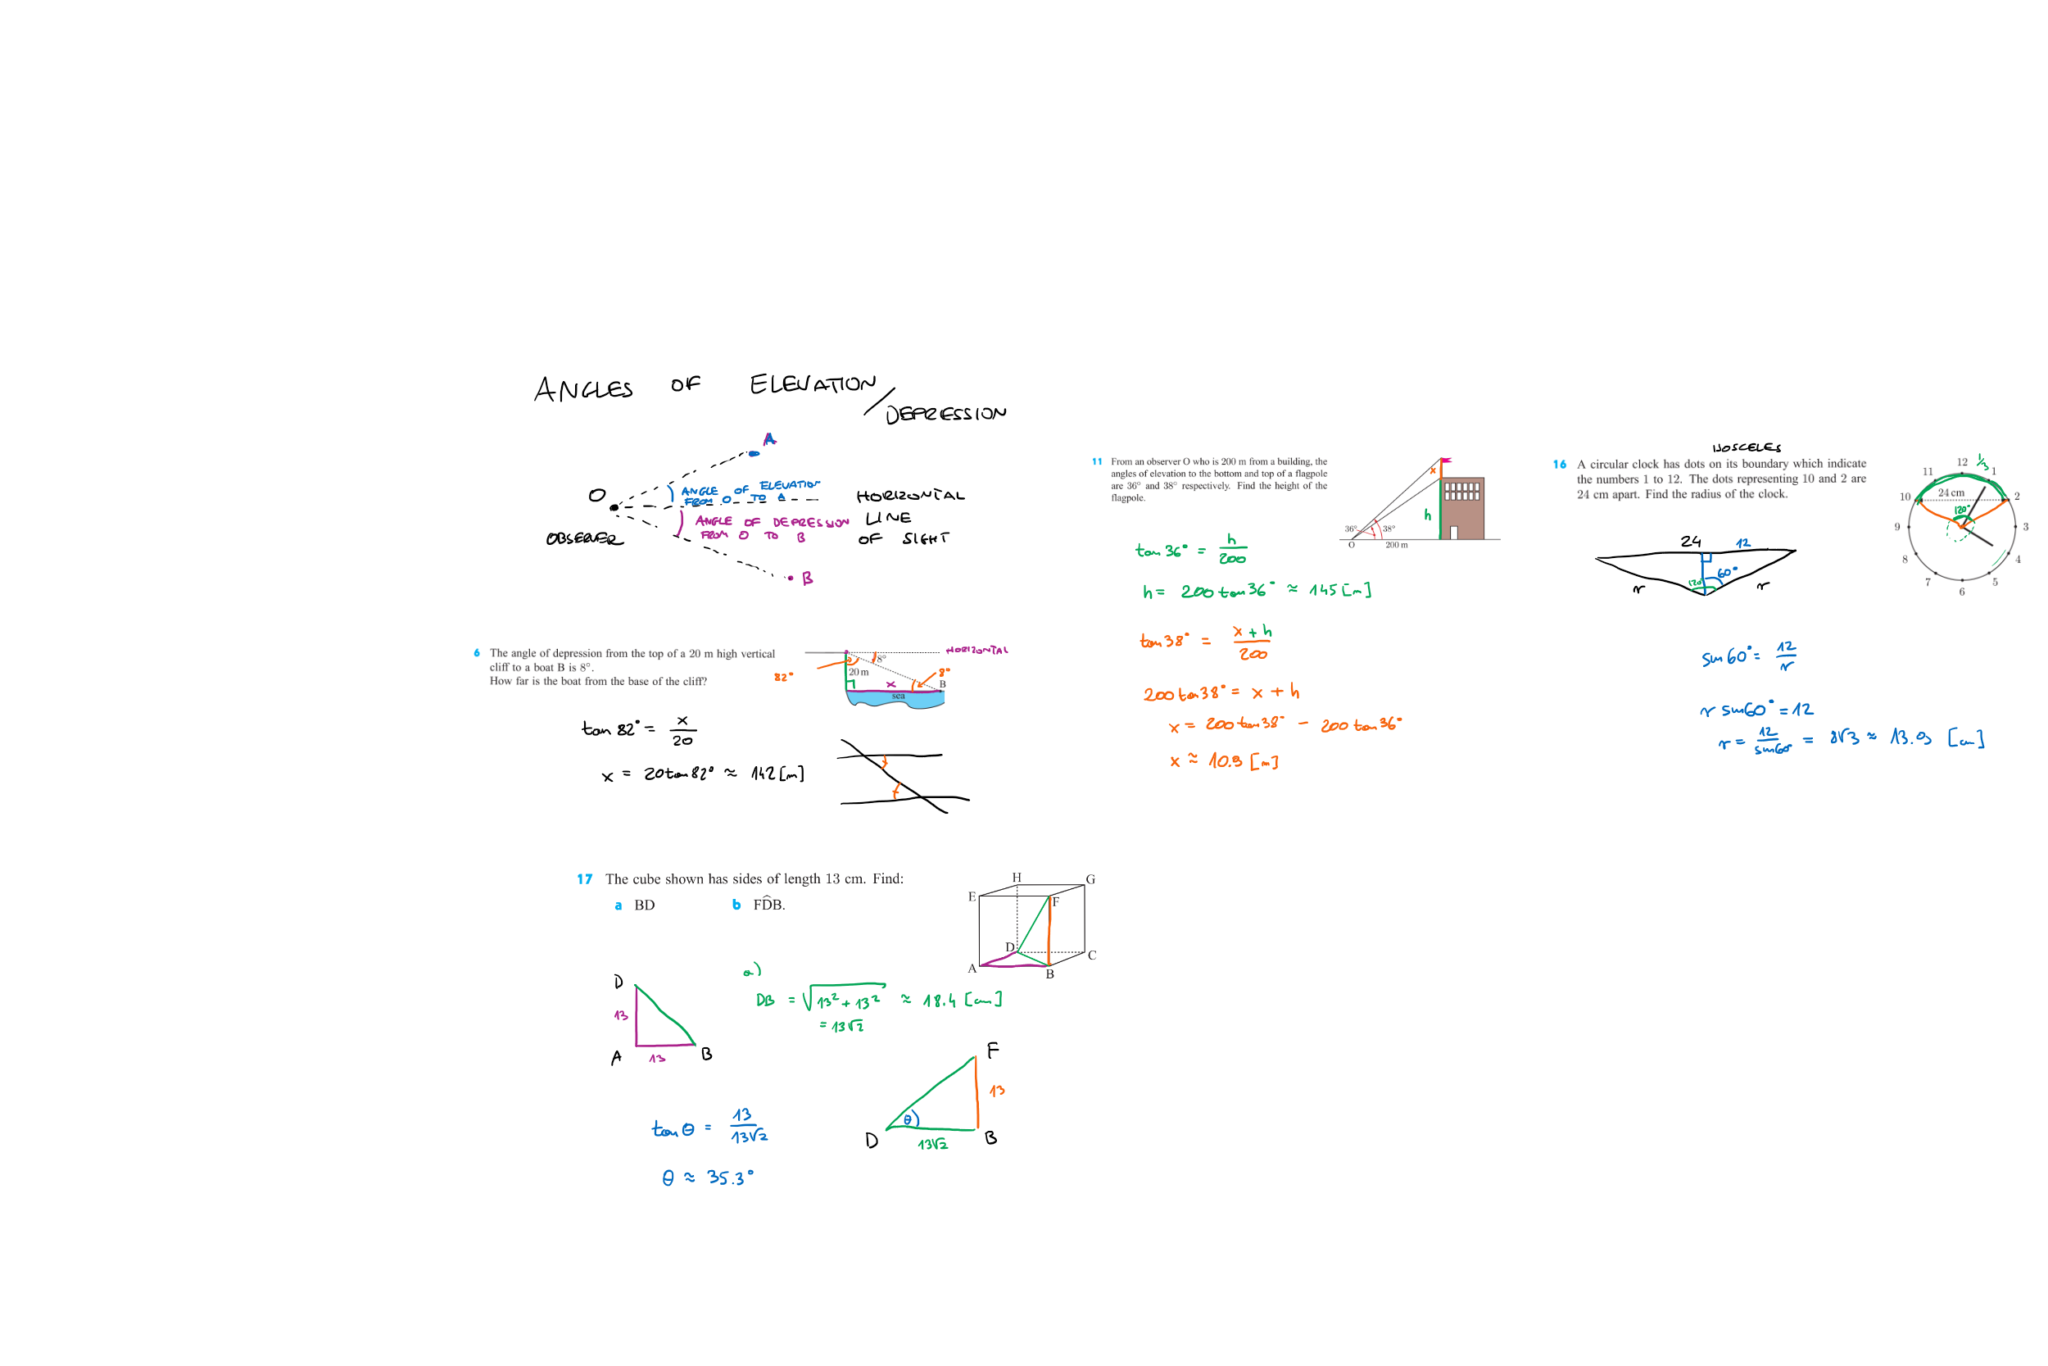 ANGLES OF ELEVATION
/DEPRESSION
A
O
ANGLE OF ELEVATION
FROM O TO A
HORIZONTAL
LINE
OF SIGHT
ANGLE OF DEPRESSION
FROM O TO B
OBSERVER
B
6 The angle of depression from the top of a 20 m high vertical
cliff to a boat B is 8°.
How far is the boat from the base of the cliff?
HORIZONTAL
8°
82°
20 m
x
8°
B
sea
tan 82° = x/20
x = 20 tan 82° ≈ 142 [m]
11 From an observer O who is 200 m from a building, the
angles of elevation to the bottom and top of a flagpole
are 36° and 38° respectively. Find the height of the
flagpole.
x
h
36°
38°
O
200 m
tan 36° = h/200
h = 200 tan 36° ≈ 145 [m]
tan 38° = x + h/200
200 tan 38° = x + h
x = 200 tan 38° - 200 tan 36°
x ≈ 10.9 [m]
ISOSCELES
16 A circular clock has dots on its boundary which indicate
the numbers 1 to 12. The dots representing 10 and 2 are
24 cm apart. Find the radius of the clock.
12 1/3
11 1
10 24 cm 2
120°
9 3
8 4
7 5
6
24 12
120° 60°
r r
sin 60° = 12/r
r sin 60° = 12
r = 12/sin 60° = 8√3 ≈ 13.9 [cm]
17 The cube shown has sides of length 13 cm. Find:
a BD b FD̂B.
H G
E F
D C
A B
D
13
A 13 B
a)
DB = √13² + 13² ≈ 18.4 [cm]
= 13√2
F
13
θ
D 13√2 B
tan θ = 13/13√2
θ ≈ 35.3°